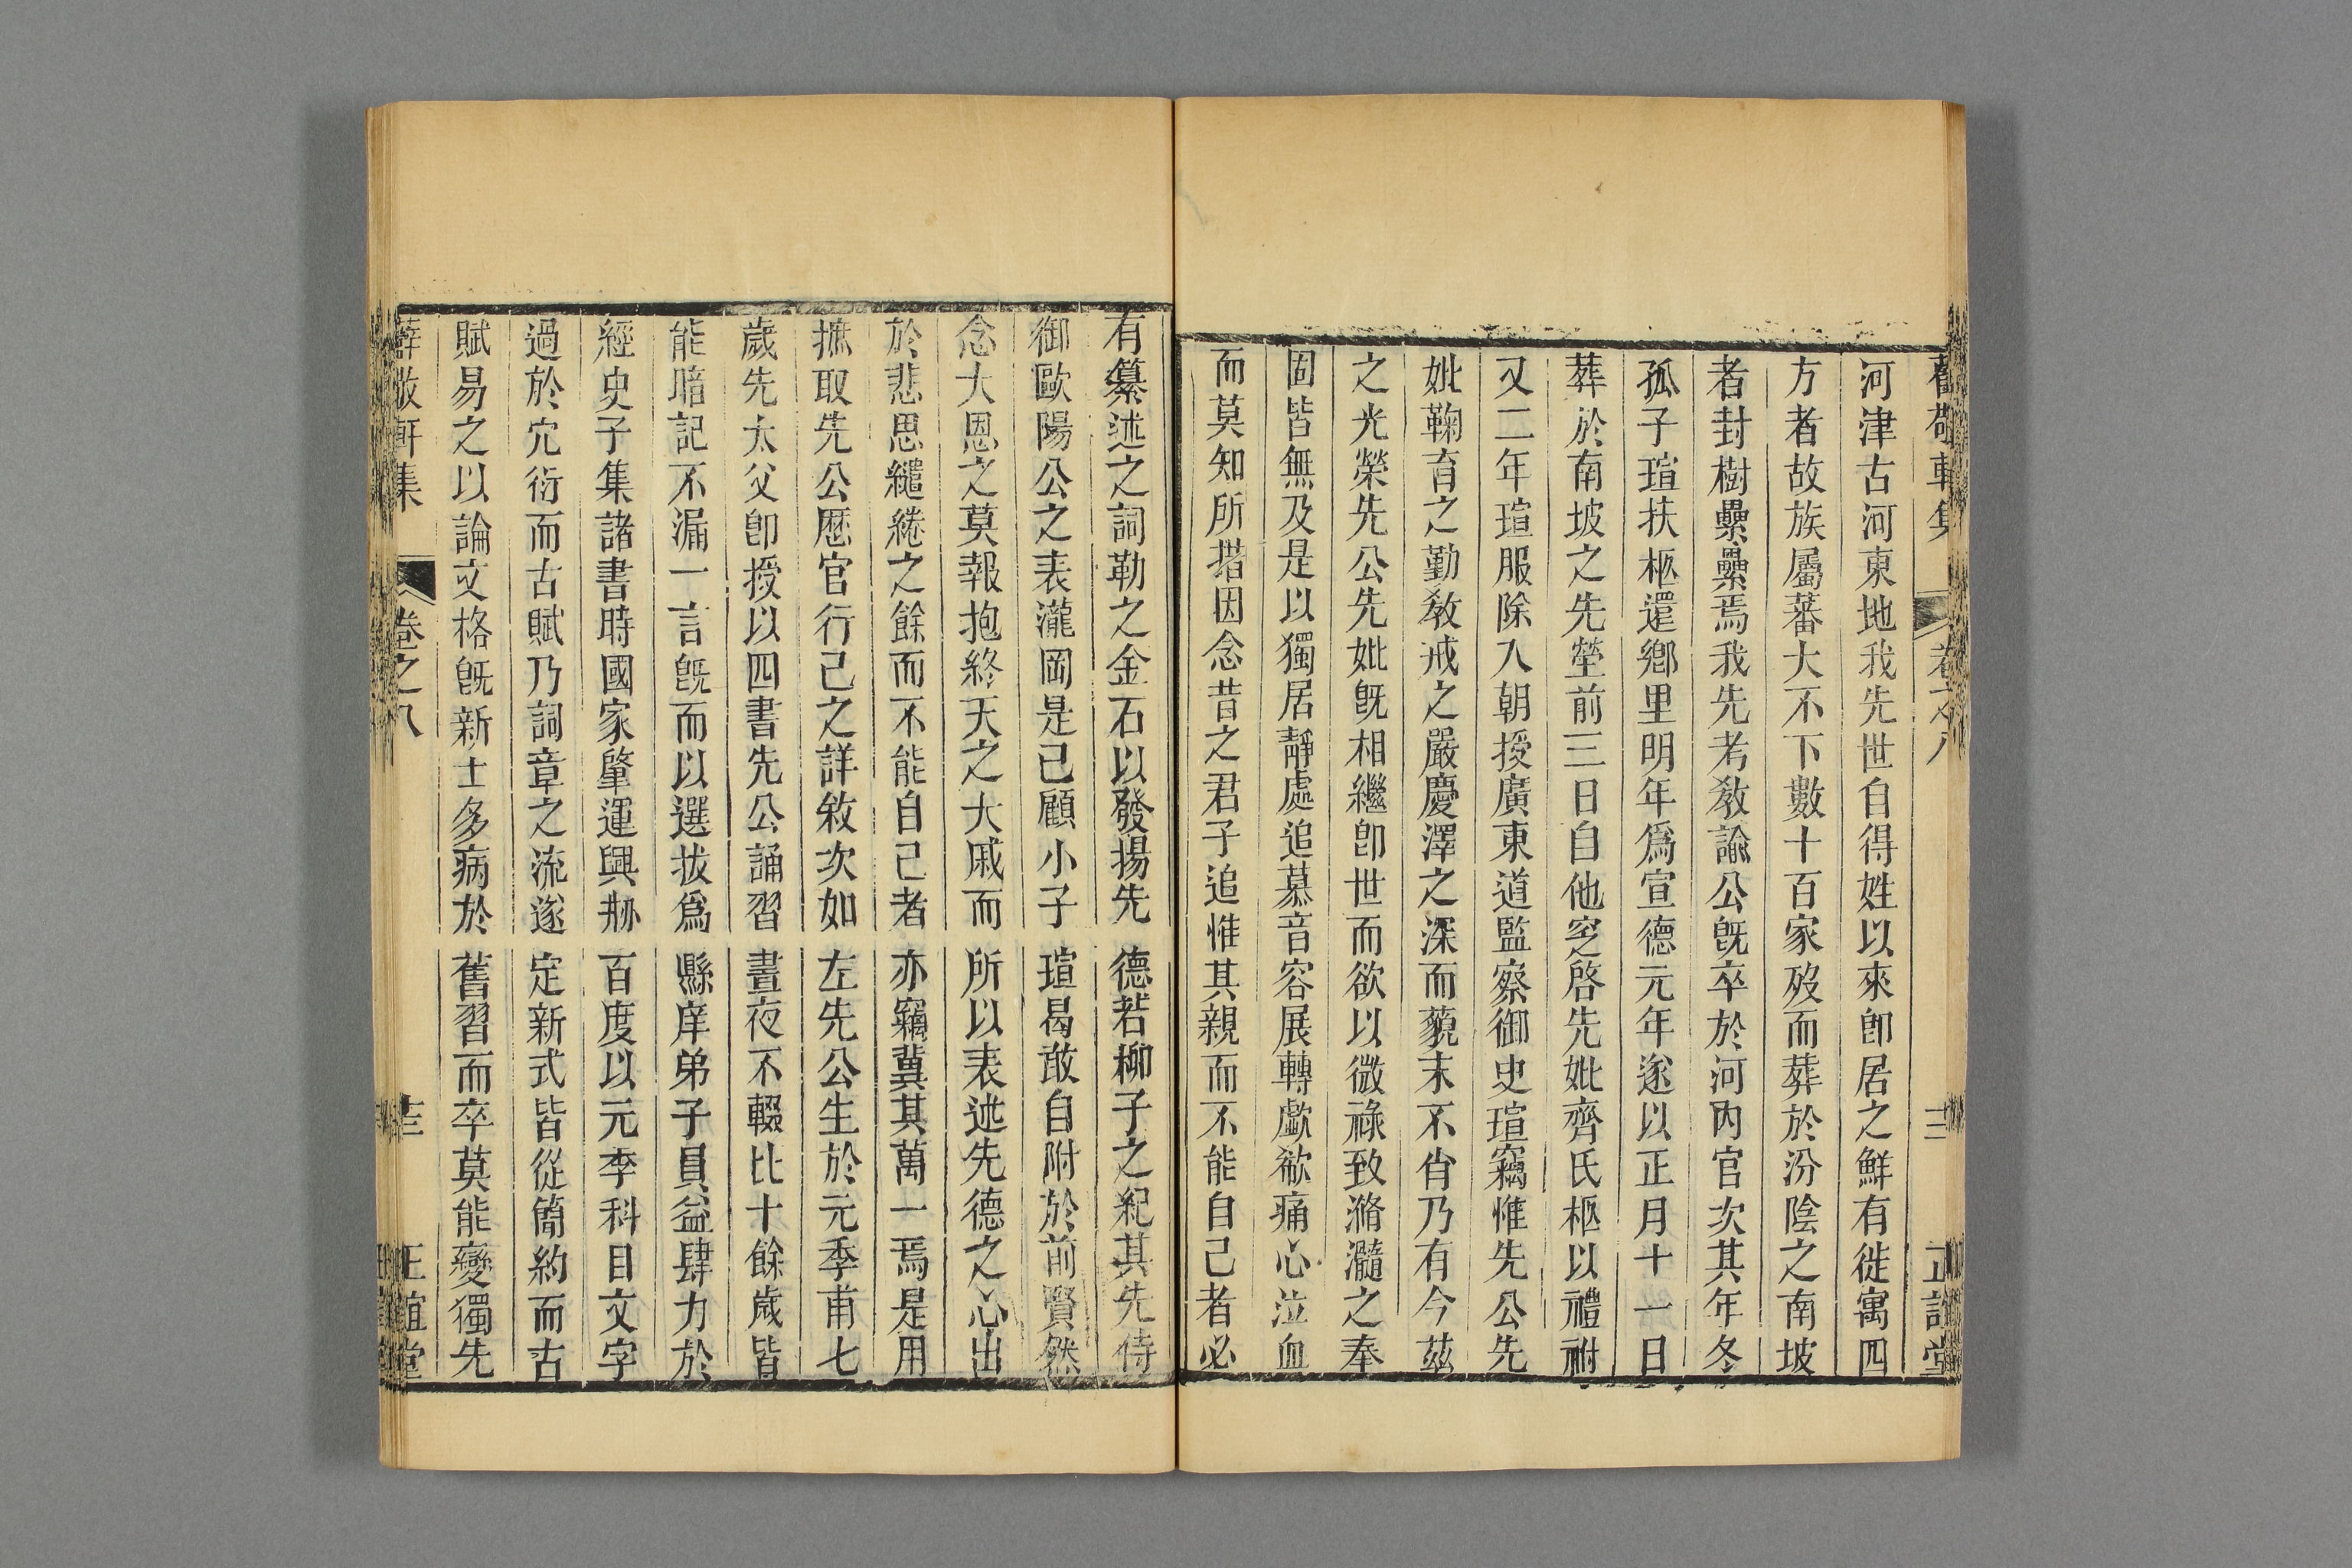 薛敬軒集 卷之八 正誼堂
河津古河東地我先世自得姓以來卽居之鮮有徙寓四
方者故族屬蕃大不下數十百家歿而葬於汾陰之南坡
者封樹纍纍焉我先考敎諭公旣卒於河內官次其年冬
孤子瑄扶柩還鄉里明年爲宣德元年遂以正月十一日
葬於南坡之先塋前三日自他窆啓先妣齊氏柩以禮祔
又二年瑄服除入朝授廣東道監察御史瑄竊惟先公先
妣鞠育之勤敎戒之嚴慶澤之深而藐末不肖乃有今茲
之光榮先公先妣旣相繼卽世而欲以微祿致滫瀡之奉
固皆無及是以獨居靜處追慕音容展轉歔欷痛心泣血
而莫知所措因念昔之君子追惟其親而不能自已者必
有纂述之詞勒之金石以發揚先德若柳子之紀其先侍
御歐陽公之表瀧岡是已顧小子瑄曷敢自附於前賢然
念大恩之莫報抱終天之大戚而所以表述先德之心出
於悲思繾綣之餘而不能自已者亦竊冀其萬一焉是用
摭取先公歷官行己之詳敘次如左先公生於元季甫七
歲先太父卽授以四書先公誦習晝夜不輟比十餘歲皆
能暗記不漏一言旣而以選拔爲縣庠弟子員益肆力於
經史子集諸書時國家肇運興刱百度以元季科目文字
過於宂衍而古賦乃詞章之流遂定新式皆從簡約而古
賦易之以論文格旣新士多病於舊習而卒莫能變獨先
薛敬軒集 卷之八 正誼堂